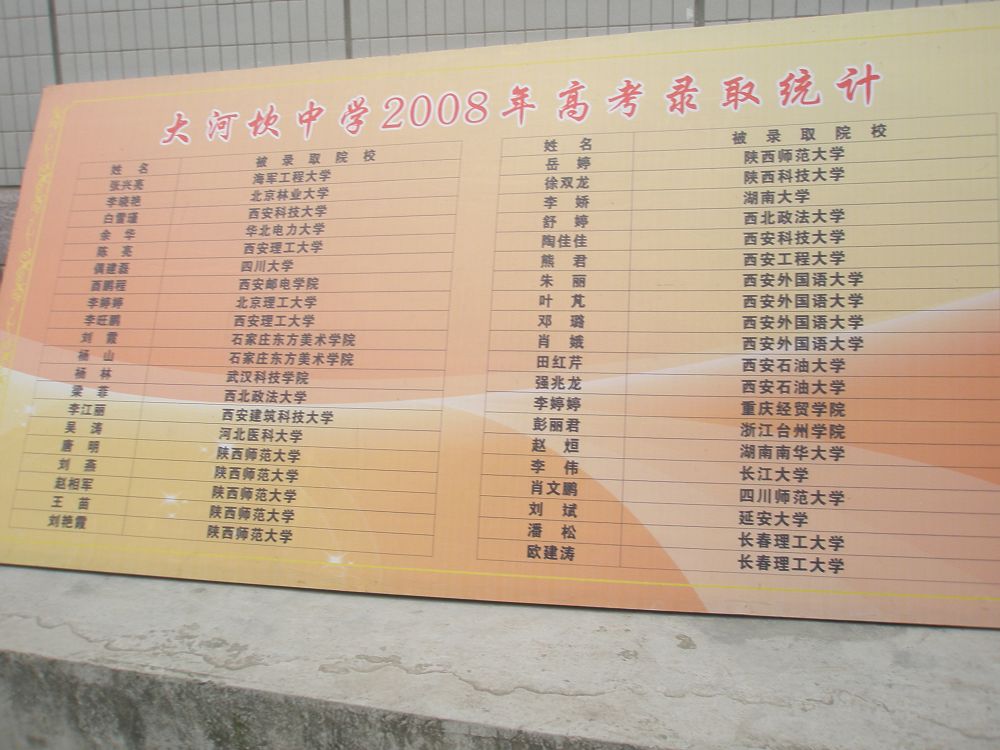 大河坎中学2008年高考录取统计
姓 名 被 录 取 院 校
张兴亮 海军工程大学
李晓艳 北京林业大学
白雪瑾 西安科技大学
余 华 华北电力大学
陈 亮 西安理工大学
偶建磊 四川大学
西鹏程 西安邮电学院
李婷婷 北京理工大学
李旺鹏 西安理工大学
刘 霞 石家庄东方美术学院
杨 山 石家庄东方美术学院
杨 林 武汉科技学院
梁 菲 西北政法大学
李江丽 西安建筑科技大学
吴 涛 河北医科大学
唐 明 陕西师范大学
刘 燕 陕西师范大学
赵相军 陕西师范大学
王 苗 陕西师范大学
刘艳霞 陕西师范大学
姓 名 被 录 取 院 校
岳 婷 陕西师范大学
徐双龙 陕西科技大学
李 娇 湖南大学
舒 婷 西北政法大学
陶佳佳 西安科技大学
熊 君 西安工程大学
朱 丽 西安外国语大学
叶 芃 西安外国语大学
邓 璐 西安外国语大学
肖 娥 西安外国语大学
田红芹 西安石油大学
强兆龙 西安石油大学
李婷婷 重庆经贸学院
彭丽君 浙江台州学院
赵 烜 湖南南华大学
李 伟 长江大学
肖文鹏 四川师范大学
刘 斌 延安大学
潘 松 长春理工大学
欧建涛 长春理工大学